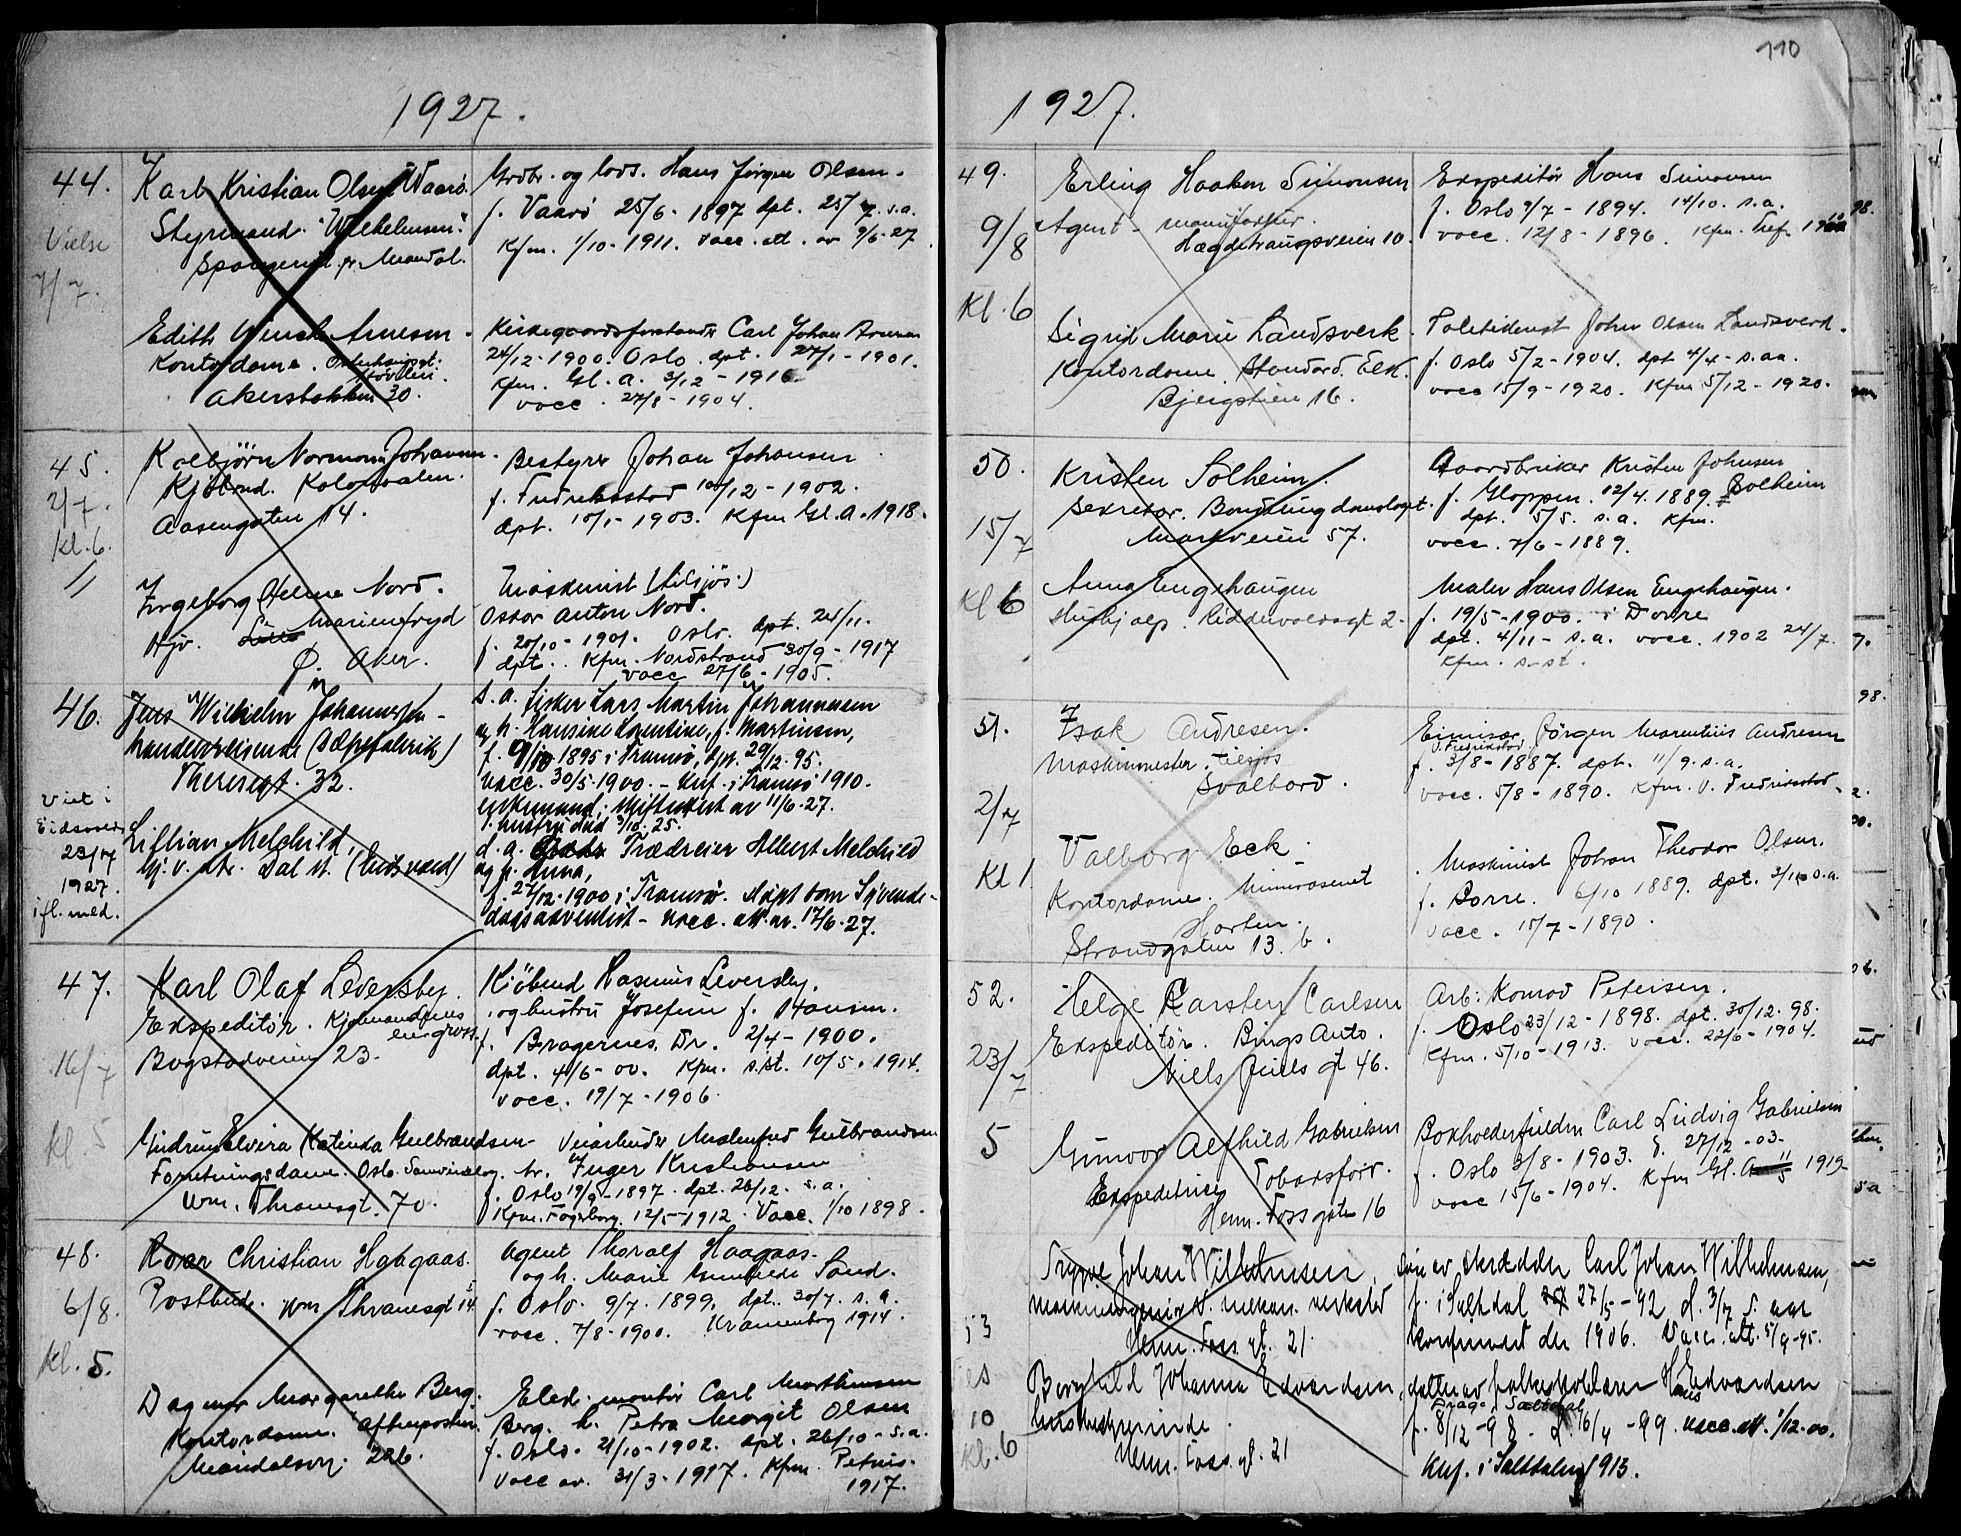 110
1927.
44.
Vielse
7/7.
Karl Kristian Olsen Vaarö.
Styrmand. "Wilhelmsen".
Spangereid pr. Mandal.
Grdbr. og lods. Hans Jörgen Olsen.
f. Vaarö 25/6 - 1897 dpt. 25/7. s.a.
Kfm. 1/10 - 1911. vacc. att. av 9/6-27.
Edith Arnesen.
Kontordame.
Akersbakken 30.
Kirkegaardsforstander Carl Johan Arnesen
24/12-1900. Oslo. dpt. 27/1 - 1901.
Kfm. Gl. A. 3/12 - 1916.
vacc. 27/8 - 1904.
45.
2/7.
Kl. 6.
Kolbjörn Normann Johansen.
Kjöbmd. Kolonialen.
Aasengaten 14.
Bestyrer Johan Johansen
f. Fredriksstad 10/12 - 1902.
dpt. 10/1 - 1903. Kfm Gl. A. 1918.
Ingeborg Helene Nord.
Hjv. Marienfryd
Ø. Aker.
Maskinist (tilsjös.)
Oskar Anton Nord.
f. 20/10 - 1901. Oslo. dpt. 24/11.
dpt. Kfm. Nordstrand 30/9 - 1917
vacc 27/6 - 1905.
46.
Viet i
Eidsvold
23/7
1927.
ifl. meld.
Jens Wilhelm Johannessen -
handelsreisende (Sæpefabrik)
Theresesgt. 32.
s. a. fisker Lars Martin Johannessen
og h. Hansine Laurentine, f. Martinsen,
f. 9/10 1895 i Tromsö, dpt. 29/12. 95.
vacc. 30/5-1900. - Knf. i Tromsö 1910.
enkemand; skifteattest av 11/6-27.
1. hustru död 3/10. 25.
Lillian Melchild,
hj. v. Dal st. (Eidsvold)
d. a. Trædreier Albert Melchild
og h. Anna,
f. 27/12-1900 i Tromsö. Döpt som Syvende-
dagsadventist - vacc. att. av. 17/6-27.
47.
16/7
Kl 5
Karl Olaf Leversby.
Ekspeditör. Kjömandenes
engros.
Bogstadveien 23.
Kjöbmd Rasmus Leversby.
og hustru Josefine f. Hansen.
f. Bragernes. Dr. 2/4 - 1900.
dpt. 4/6 - Kfm. s.st. 10/5. 1914.
vacc. 19/7 - 1906.
Gudrun Elvira Katinda Gulbrandsen
Forretningsdame. Oslo Samvirkelag.
Wm. Thranesgt. 70.
Veiarbeider Gulbrandsen
h. Inger Kristiansen
f. Oslo 19/9 - 1897. dpt. 26/12. s.a.
Kfm. Fagerborg. 12/5-1912. Vacc. 1/10 1898.
48.
6/8.
Kl. 5.
Roar Christian Haagaas.
Postbud. Wm Thranesgt 14
Agent Thoralf Haagaas.
og h. Marie Sand.
f. Oslo. 9/7. 1899. dpt. 30/7. s.a.
vacc. 7/8-1900. Uranienborg 1914.
Dagmar Margarethe Berg.
Kontordame. Aftenposten.
Maridalsvn. 226.
Elek. montör Carl Marthinsen
Berg. h. Petra Margit Olsen
f. Oslo. 21/10 - 1902. dpt. 26/10 - s.a.
vacc av. 31/3 - 1917. Kfm. Petrus.
1917.
1927.
49.
9/8
Kl. 6
Erling Haakon Simonsen
Agent - manufaktur.
Hægdehaugsveien 10.
Ekspeditör Hans Simonsen
f. Oslo 9/7 - 1894. 14/10. s.a.
vacc. 12/8 - 1896. Kfm. Tref.
Sigrid Marie Landsverk.
Kontordame. Standard. Elek.
Bjergstien 16.
Politibetjent John Olsen Landsverk.
f. Oslo 5/2 - 1904. dpt 4/4 - s.aa.
vacc 15/9 - 1920. Kfm 5/12 - 1920.
50.
15/7
Kl 6
Kristen Solheim.
Sekretær. Bondeungdomslaget.
Markveien 57.
Gaardbruker Kristen Johnsen
Solheim
f. Gloppen. 12/4. 1889.
dpt. 5/5. s.a. Kfm.
vacc. 7/6 - 1889.
Anna Engehaugen
Hushjælp. Riddervoldsgt 2.
Maler Hans Olsen Engehaugen.
f. 19/5 - 1900. i Dovre
dpt. 4/11 - s.a. vacc. 1902 24/7.
Kfm. s.st.
51.
2/7
Kl 1
Isak Andresen.
Maskinmester, tilsjös
Svalbard.
Jörgen Marentius Andresen
f. 3/8 - 1887. dpt. 11/9. s.a.
V. Fredrikstad
vacc. 5/8 - 1890. Kfm. V. Fredriksstad.
Valborg Eck.
Kontordame. Minevesenet
Horten.
Strandgaten 13. b.
Maskinist Johan Theodor Olsen.
f. Borre. 6/10 1889. dpt. 3/11 s.a.
vacc. 15/7 - 1890.
52.
23/7
5
Helge Karsten Carlsen
Ekspeditör. Bings Auto.
Niels Juels gt 46.
Arb: Konrad Petersen.
f. Oslo 23/12 - 1898. dpt. 30/12. 98.
Kfm. 5/10 - 1913. vacc. 22/6 - 1904.
Gunvor Alfhild Gabrielsen
Ekspeditrice Tobaksforr.
Henr. Fossgate 16
Bokholderfuldm Carl Ludvig Gabrielsen
f. Oslo 3/8 - 1903. d. 27/12 - 03.
vacc 15/6 - 1904. Kfm Gl. A 1919
53
10
Kl. 6
Trygve Johan Wilhelmsen,
maskiningeniör v. mekan. verksted
Henr. Foss gt. 21.
Sön av skrædder Carl Johan Wilhelmsen,
f. i Saltdal 27/5 - 92 d. 3/7 s. aar
konfirmert der 1906. Vacc. att. 5/9-95.
Borghild Johanna Edvardsen,
husbestyrerinde.
Henr. Foss. gt. 21
datter av Hans Edvardsen
Saltdal
f. 8/12 - 98. d. 16/4 - 99. vacc. att. 1/12.00.
Knf. i Saltdalen 1913.